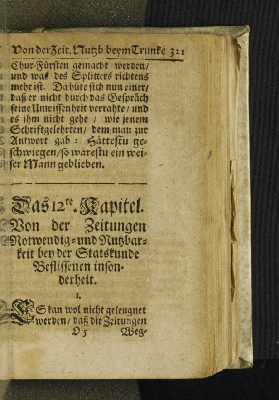 Von der Zeit. Nutzb beym Trunke 321
Chur-Fürsten gemacht werden/
und was des Splitters richtens
mehr ist. Da hüte sich nun einer/
daß er nicht durch das Gespräch
seine Unwissenheit verrahte/ und
es ihm nicht gehe / wie jenem
Schriftgelehrten/ dem man zur
Antwort gab: Hättestu ge-
schwiegen/ so wärestu ein wei-
ser Mann geblieben.
Das 12te. Kapitel.
Von der Zeitungen
Notwendig- und Nutzbar-
keit bey der Statskunde
Beflissenen inson-
derheit.
1.
ES kan wol nicht geleugnet
werden/ daß die Zeitungen
Weg-